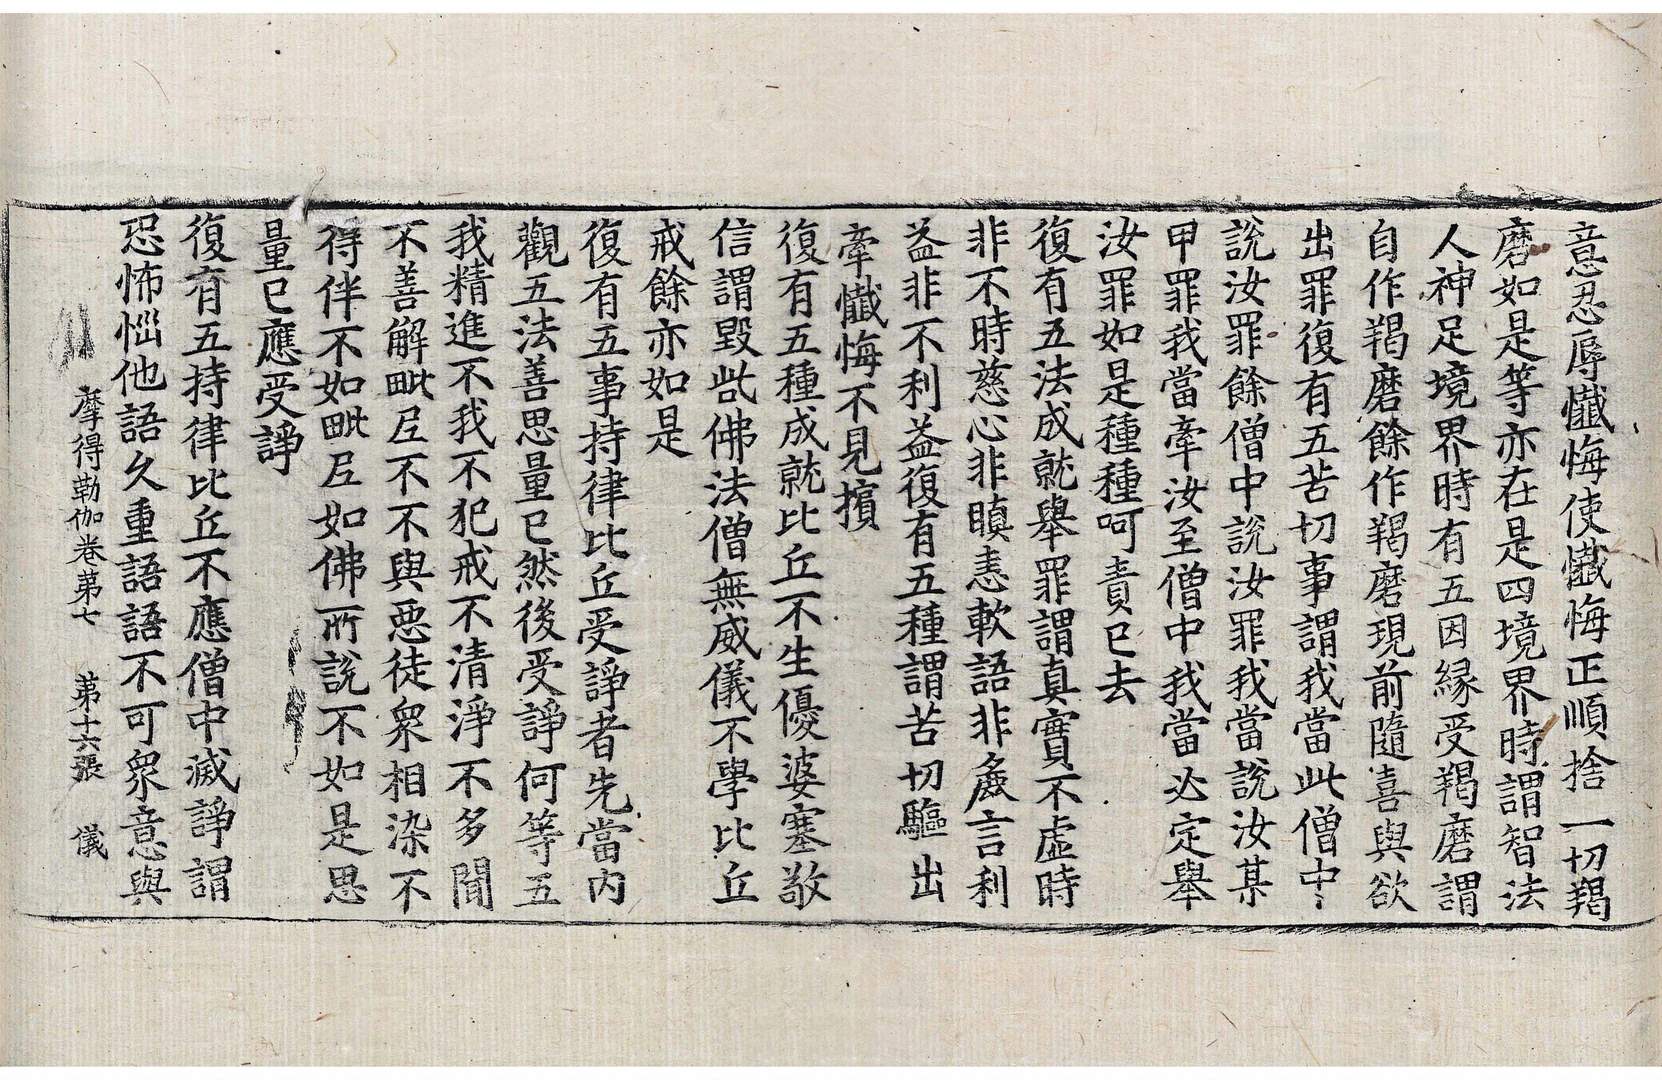 意忍辱懺悔使懺悔正順捨一切羯
磨如是等亦在是四境界時謂智法
人神足境界時有五因緣受羯磨謂
自作羯磨餘作羯磨現前隨喜與欲
出罪復有五苦切事謂我當此僧中
說汝罪餘僧中說汝罪我當說汝某
甲罪我當牽汝至僧中我當必定舉
汝罪如是種種呵責已去
復有五法成就舉罪謂真實不虛時
非不時慈心非瞋恚軟語非麁言利
益非不利益復有五種謂苦切驅出
牽懺悔不見擯
復有五種成就比丘不生優婆塞敬
信謂毀呰佛法僧無威儀不學比丘
戒餘亦如是
復有五事持律比丘受諍者先當內
觀五法善思量已然後受諍何等五
我精進不我不犯戒不清淨不多聞
不善解毗尼不不與惡徒眾相染不
得伴不如毗尼如佛所說不如是思
量已應受諍
復有五持律比丘不應僧中滅諍謂
恐怖惱他語久重語語不可眾意與
摩得勒伽卷第七 第十六張 儀